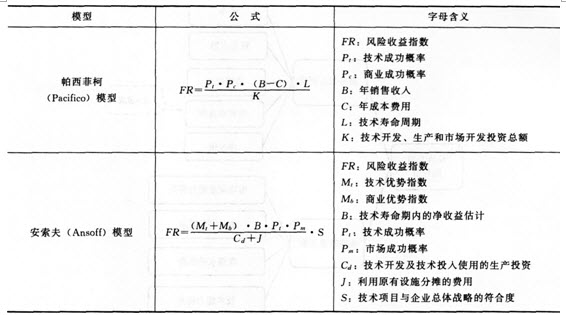 模型
公 式
字母含义
帕西菲柯
(Pacifico)模型
FR=\frac{P_t·P_c·(B-C)·L}{K}
FR:风险收益指数
P_t:技术成功概率
P_c:商业成功概率
B:年销售收入
C:年成本费用
L:技术寿命周期
K:技术开发、生产和市场开发投资总额
安索夫(Ansoff)模型
FR=\frac{(M_t+M_b)·B·P_t·P_m}{C_d+J}·S
FR:风险收益指数
M_t:技术优势指数
M_b:商业优势指数
B:技术寿命期内的净收益估计
P_t:技术成功概率
P_m:市场成功概率
C_d:技术开发及技术投入使用的生产投资
J:利用原有设施分摊的费用
S:技术项目与企业总体战略的符合度